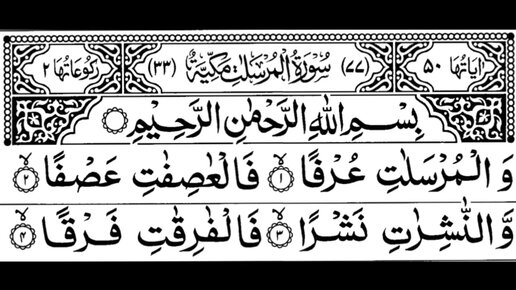 اٰیَاتُهَا ٥٠ (٧٧) سُوْرَةُ الْمُرْسَلٰتِ مَكِّيَّةٌ (٣٣) رُكُوْعَاتُهَا ٢
بِسْمِ اللهِ الرَّحْمٰنِ الرَّحِيْمِ
وَالْمُرْسَلٰتِ عُرْفًا ۙ﴿١﴾ فَالْعٰصِفٰتِ عَصْفًا ۙ﴿٢﴾
وَّالنّٰشِرٰتِ نَشْرًا ۙ﴿٣﴾ فَالْفٰرِقٰتِ فَرْقًا ۙ﴿۴﴾